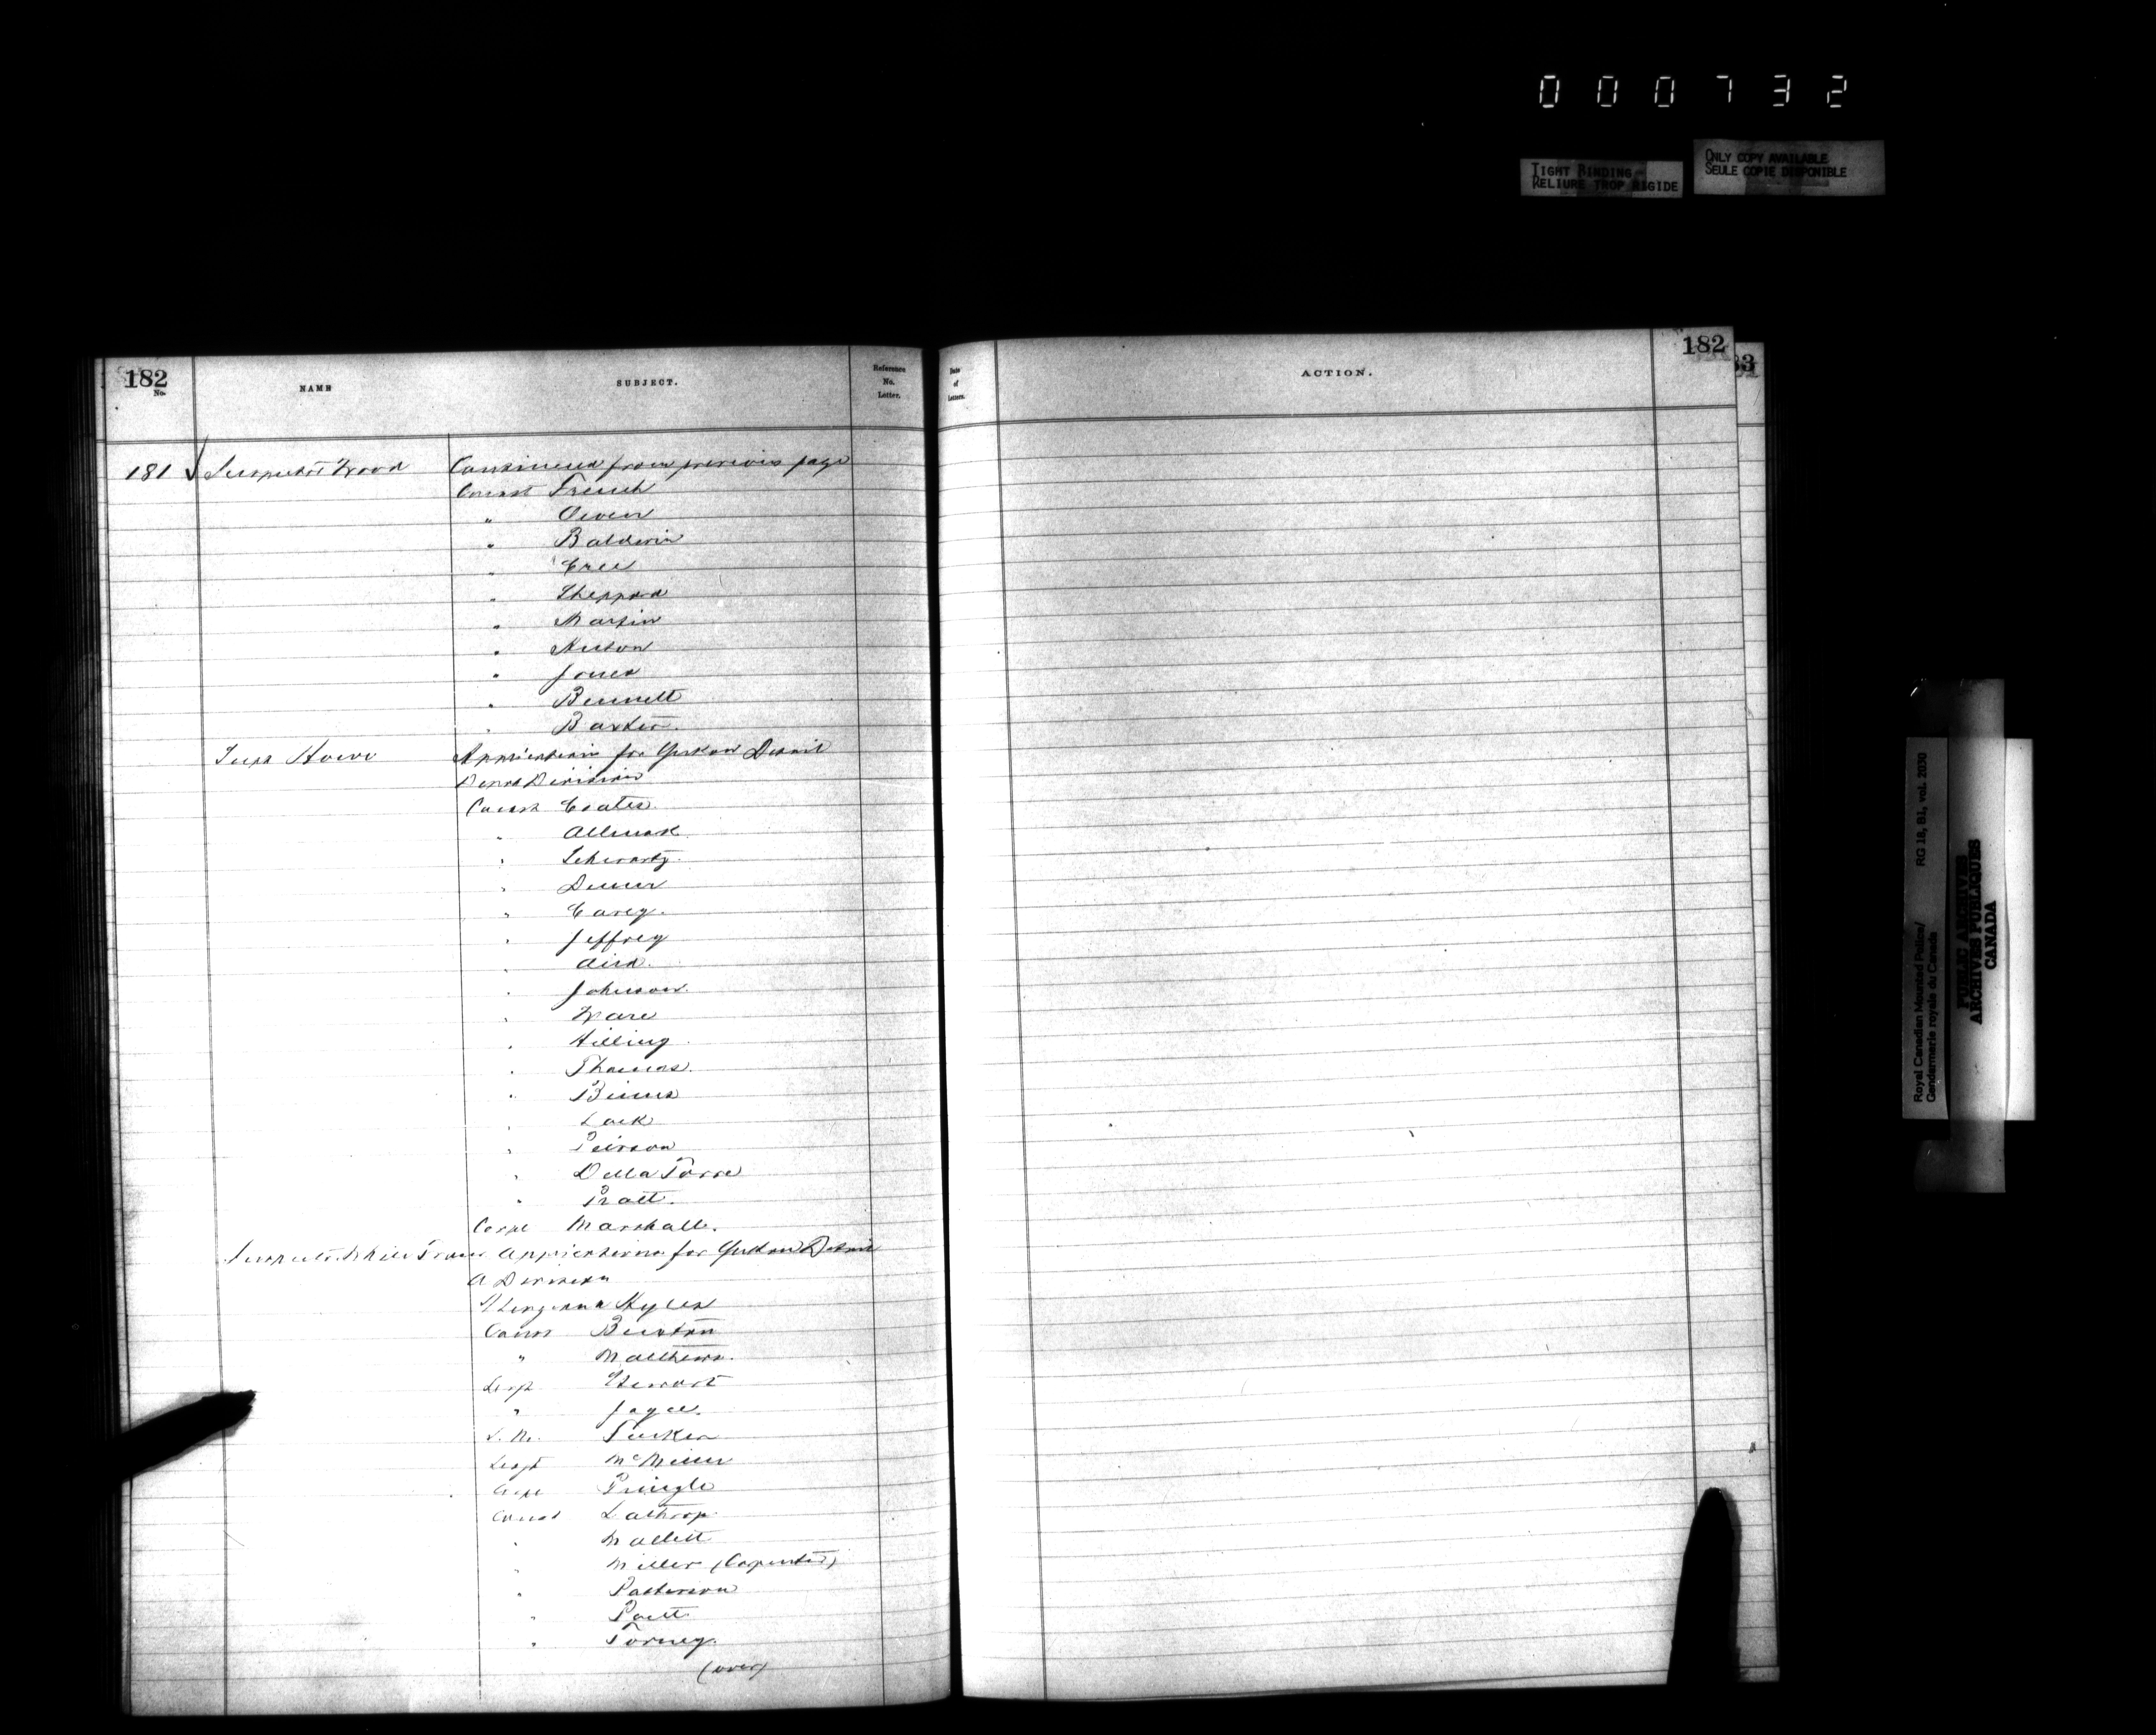 000732
TIGHT BINDING
RELIURE TROP RIGIDE
ONLY COPY AVAILABLE
SEULE COPIE DISPONIBLE
182
No.
NAME
SUBJECT.
Reference
No.
Letter.
Date
of
Letters.
ACTION.
182
181 Inspector Wood Continued from previous page
Const French
" Owen
" Baldwin
" Cree
" Sheppard
" Martin
"
" Jones
" Bennett
" Baxter
Supt Howe Application for Yukon Detail
Depot Division
Const Coates
"
" Schwartz
"
" Carey
" Jeffrey
" Aird
" Johnson
" Ware
" Hilling
" Thomas
" Binns
" Lock
" Peirson
" Della Torre
" Pratt
Corpl Marshall
Inspector White Fraser Applications for Yukon Detail
A Division
Hyles
Const Buxton
" Matthews
Sergt Stewart
" Joyce
S. M. Tucker
Sergt
Corpl Pringle
Const Lathrop
" Mallett
" Miller (Carpenter)
" Patterson
"
" Torney
(over)
Royal Canadian Mounted Police/
Gendarmerie royale du Canada
RG 18, B1, vol. 2030
PUBLIC ARCHIVES
ARCHIVES PUBLIQUES
CANADA